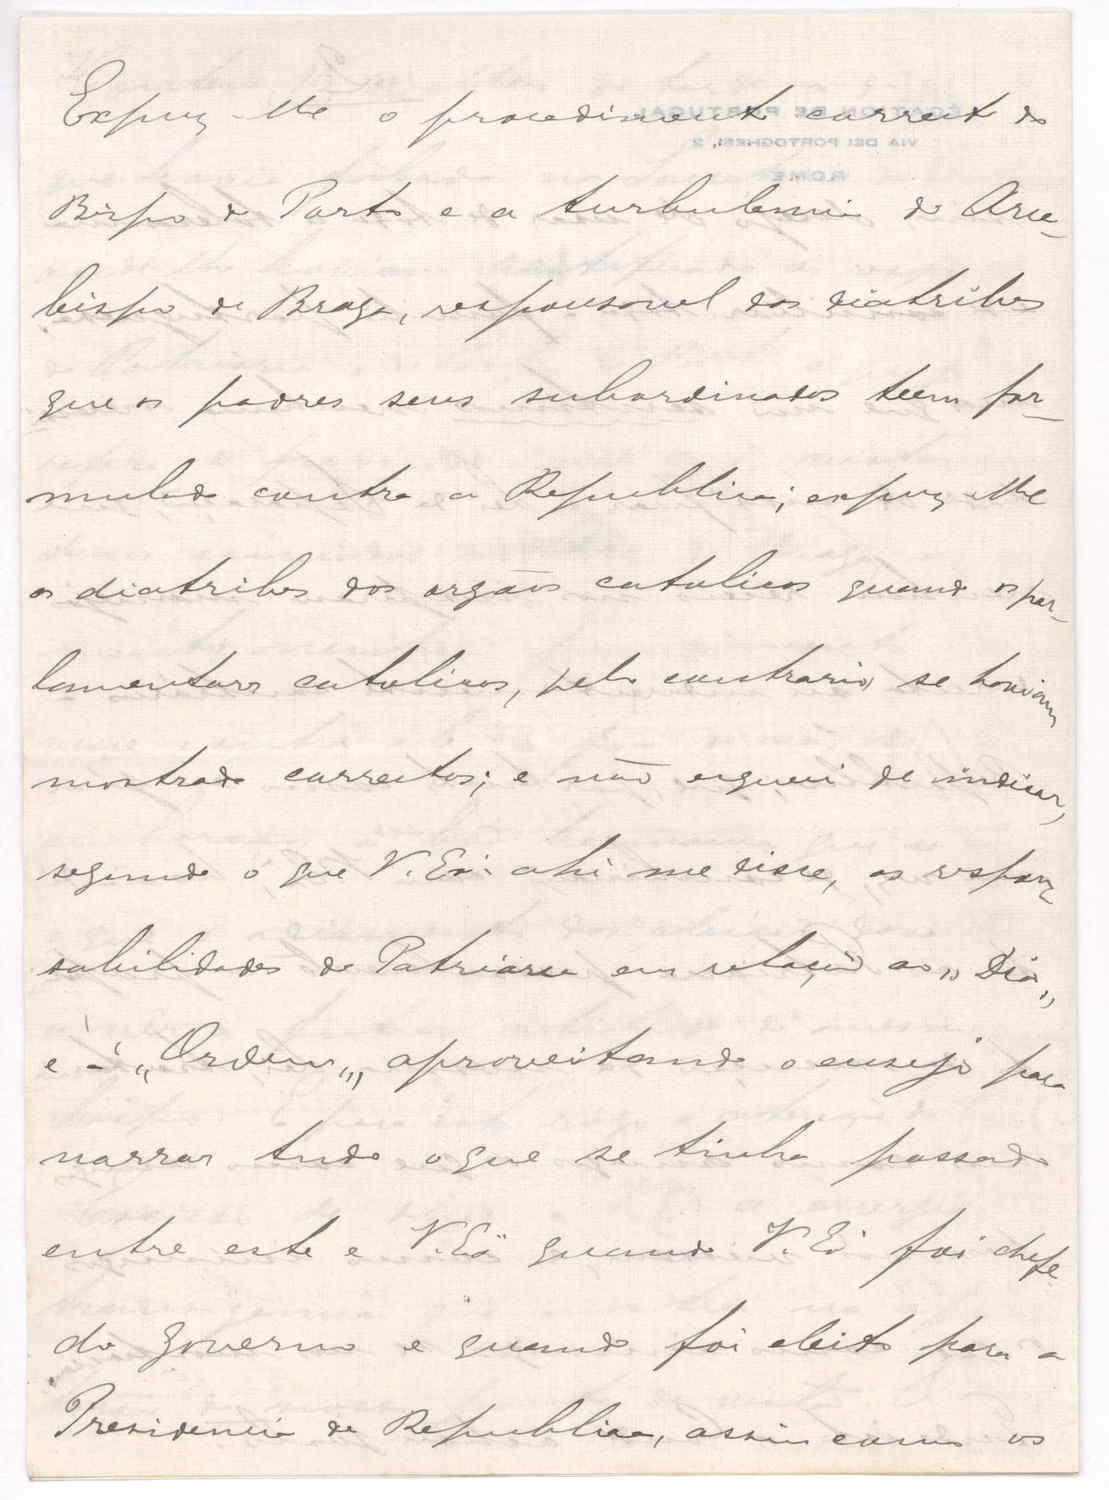 Expuz-lhe o procedimento correcto do
Bispo do Porto e a turbulencia do Arce-
bispo de Braga, responsavel das diatribes
que os padres seus subordinados teem for-
mulado contra a Republica; expuz-lhe
as diatribes dos orgãos catolicos quando os par-
lamentares catolicos, pelo contrario, se haviam
mostrado correctos; e não esqueci de indicar,
segundo o que V. Exª. ahi me disse, as respon-
sabilidades do Patriarca em relação ao „Dia„
e á „Ordem„, aproveitando o ensejo para
narrar tudo o que se tinha passado
entre este e V. Exª quando V. Exª foi chefe
do governo e quando foi eleito para a
Presidencia da Republica, assim como os